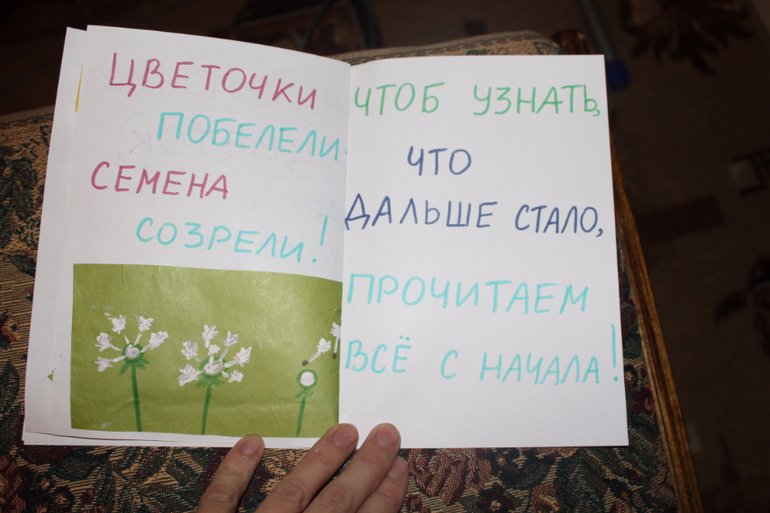 ЦВЕТОЧКИ
ПОБЕЛЕЛИ.
СЕМЕНА
СОЗРЕЛИ!
ЧТОБ УЗНАТЬ,
ЧТО
ДАЛЬШЕ СТАЛО,
ПРОЧИТАЕМ
ВСЁ С НАЧАЛА!